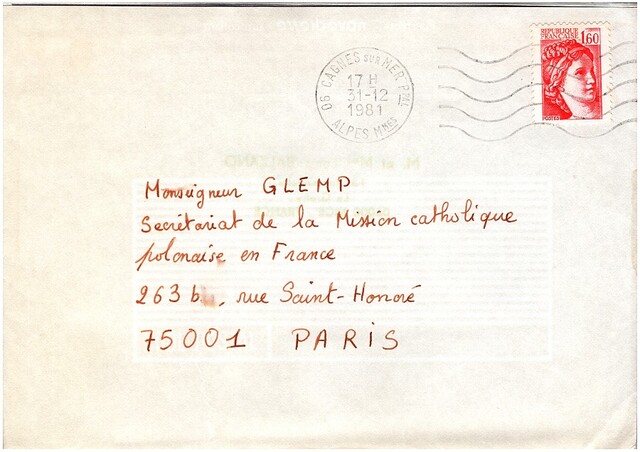 REPUBLIQUE
FRANÇAISE 1,60
06 CAGNES SUR MER PPAL
17 H
31-12
1981
ALPES MMES
Monseigneur GLEMP
Secrétariat de la Mission catholique
polonaise en France
263 b, rue Saint-Honoré
75001 PARIS